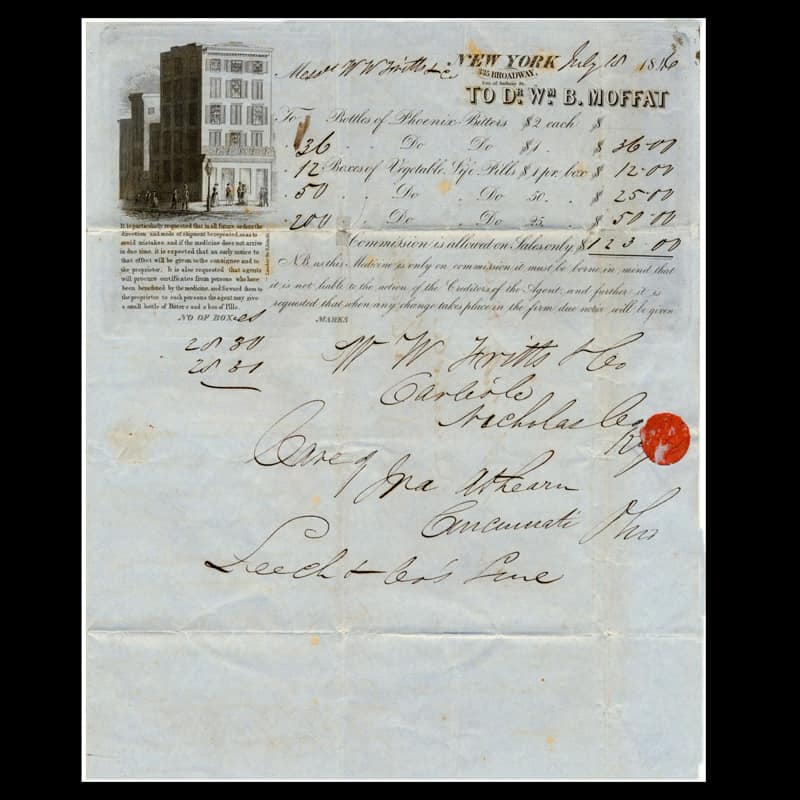 NEW YORK July 18 1846
Messrs W W Fritts & Co
335 BROADWAY,
Cor. of Anthony St.
TO DR. WM B. MOFFAT
To Bottles of Phoenix Bitters $2 each $
36 Do Do $1 $ 36.00
12 Boxes of Vegetable Life Pills $1 pr. box $ 12.00
50 Do Do 50 $ 25.00
200 Do Do 25 $ 50.00
Commission is allowed on Sales only $ 123.00
NB as this Medicine is only on commission, it must be borne in mind that
it is not liable to the action of the Creditors of the Agent, and further it is
requested that when any change takes place in the firm due notice will be given
It is particularly requested that in all future orders the
direction and mode of shipment be repeated, so as to
avoid mistakes, and if the medicine does not arrive
in due time, it is expected that an early notice to
that effect will be given to the consignee and to
the proprietor. It is also requested that agents
will procure certificates from persons who have
been benefited by the medicine, and forward them to
the proprietor to each person the agent may give
a small bottle of Bitters and a box of Pills.
NO OF BOXes MARKS
28 30
28 31
W W Fritts & Co
Carlisle
Nicholas Co
Ky
Care of
Ira Athearn
Cincinnati Ohio
Leech & Co's Line